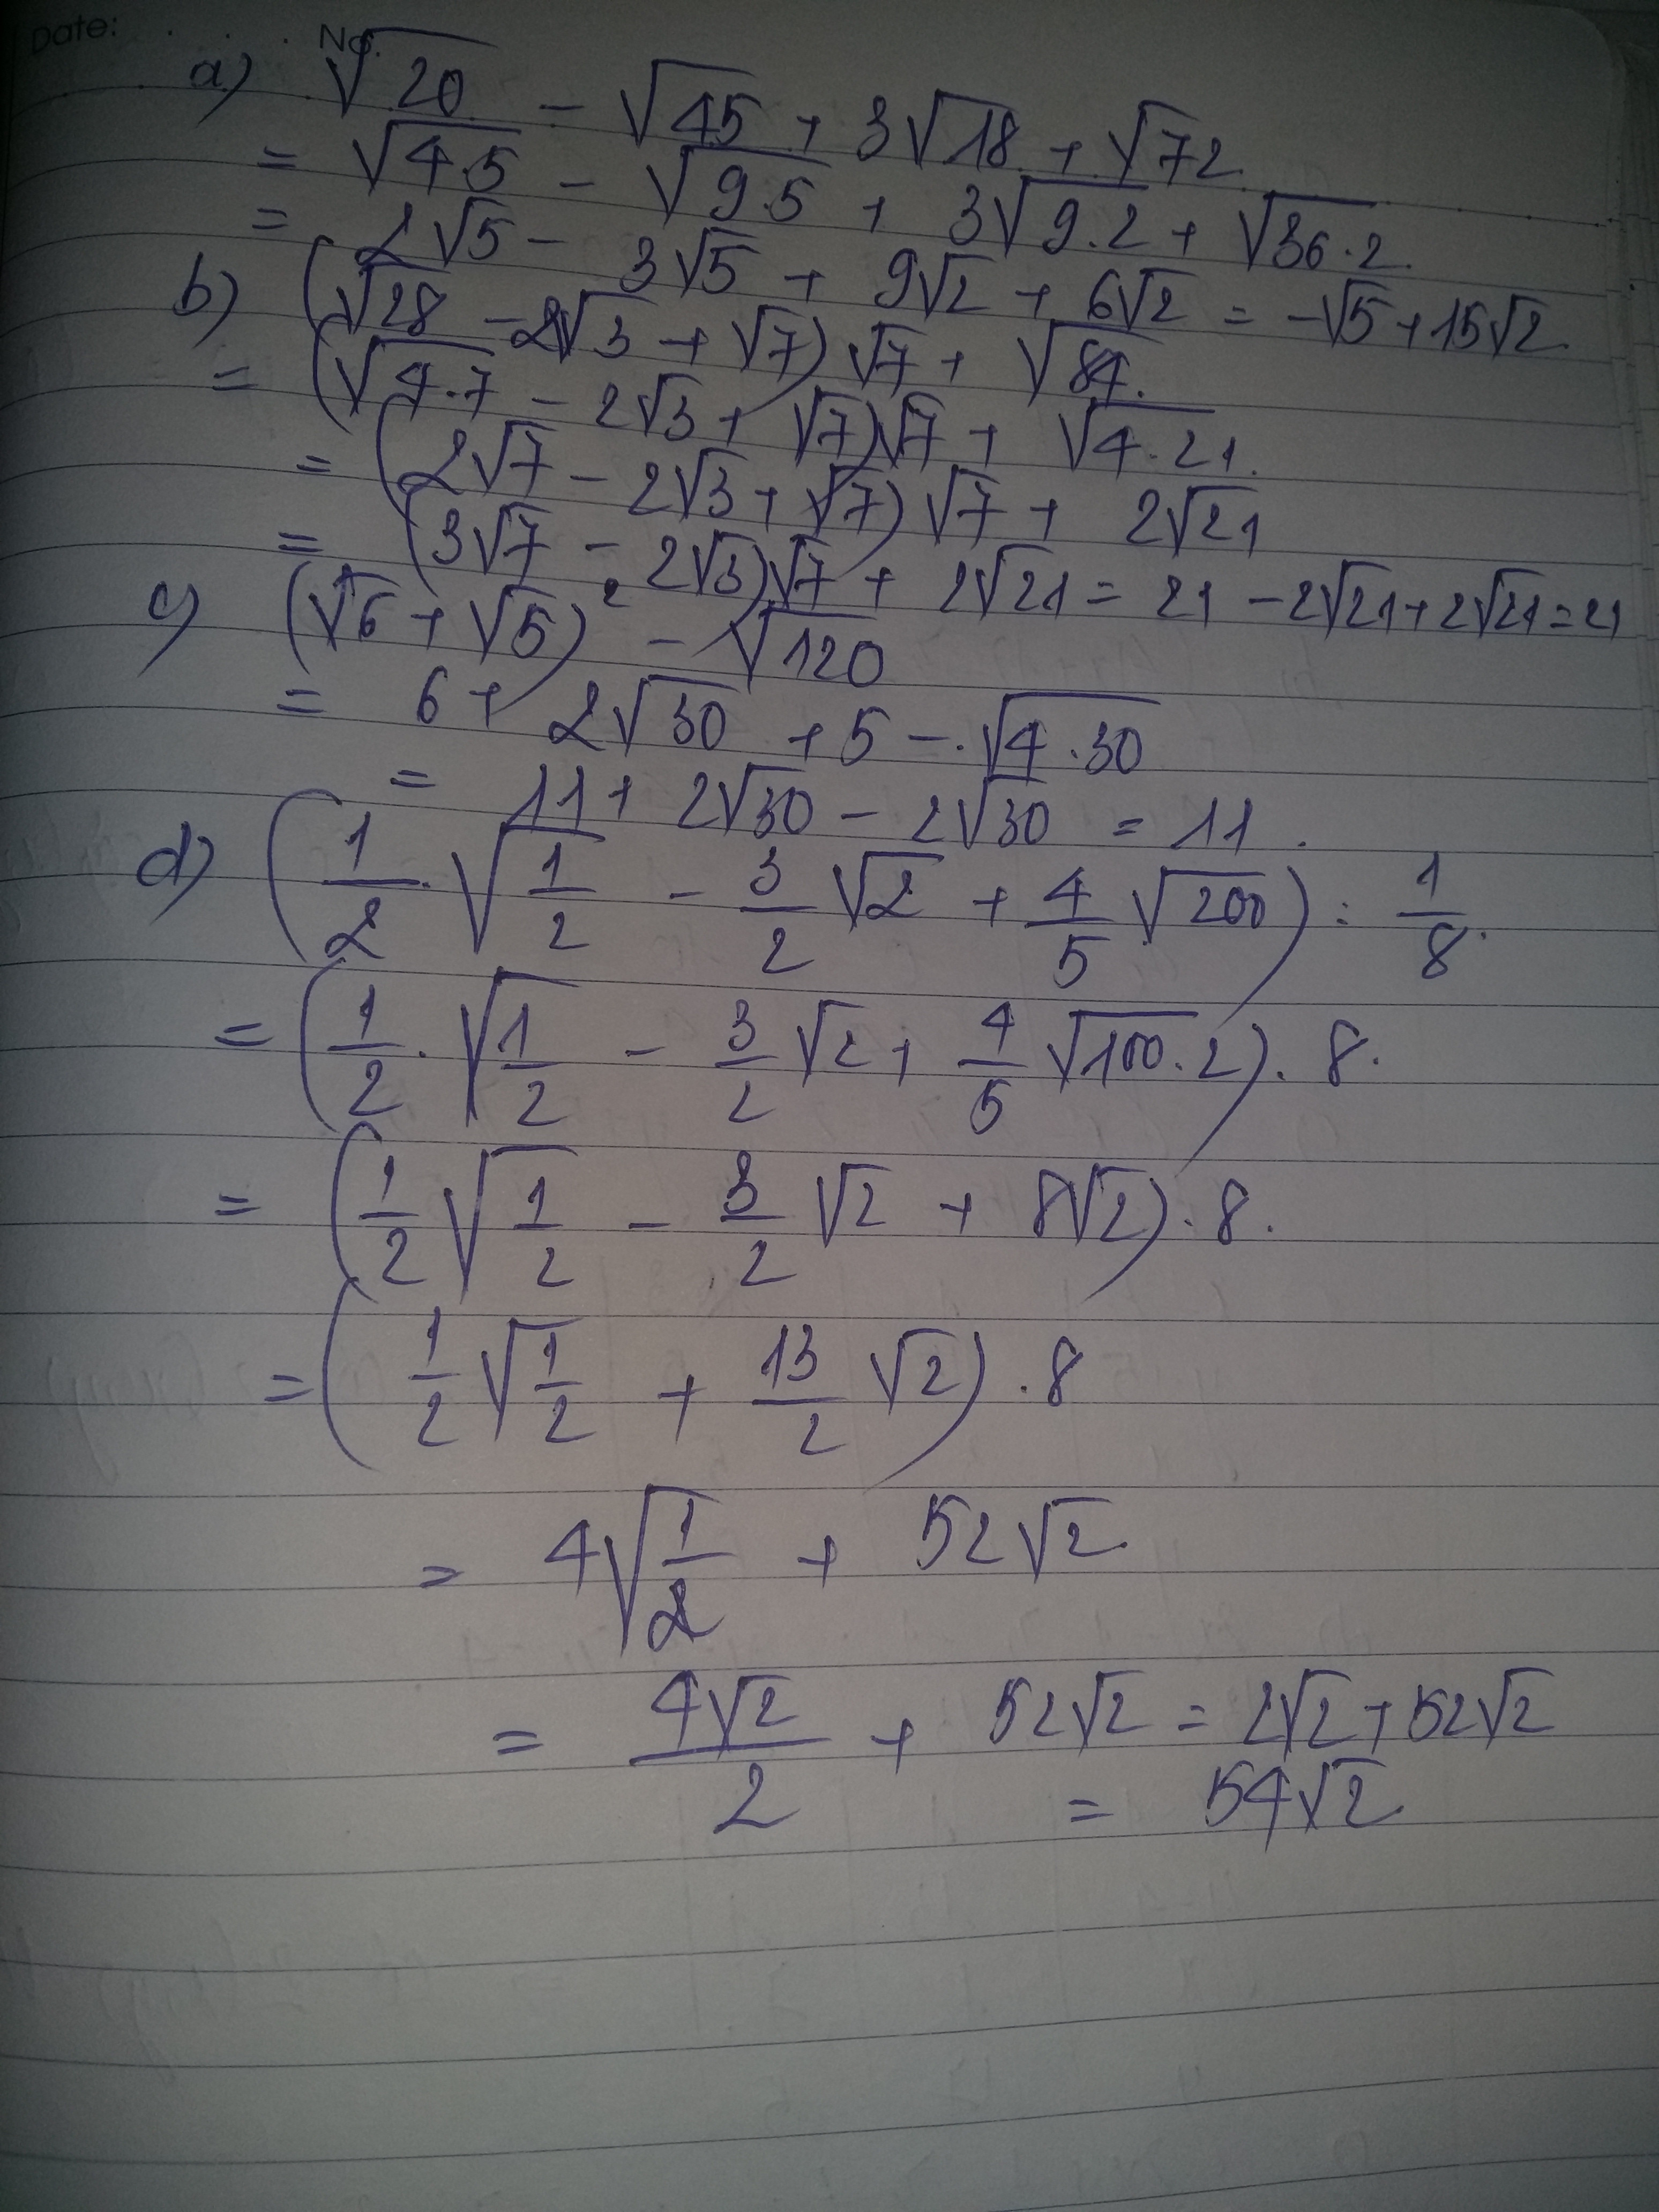 Date: No.
a) √20 - √45 + 3√18 + √72
= √4.5 - √9.5 + 3√9.2 + √36.2
= 2√5 - 3√5 + 9√2 + 6√2 = -√5 + 15√2
b) (√28 - 2√3 + √7)√7 + √84
= (√4.7 - 2√3 + √7)√7 + √4.21
= (2√7 - 2√3 + √7)√7 + 2√21
= (3√7 - 2√3)√7 + 2√21 = 21 - 2√21 + 2√21 = 21
c) (√6 + √5)² - √120
= 6 + 2√30 + 5 - √4.30
= 11 + 2√30 - 2√30 = 11.
d) (1/2 . √1/2 - 3/2 √2 + 4/5 √200) : 1/8
= (1/2 . √1/2 - 3/2 √2 + 4/5 √100.2) . 8.
= (1/2 √1/2 - 3/2 √2 + 8√2) . 8.
= (1/2 √1/2 + 13/2 √2) . 8
= 4√1/2 + 52√2
= 4√2/2 + 52√2 = 2√2 + 52√2
= 54√2